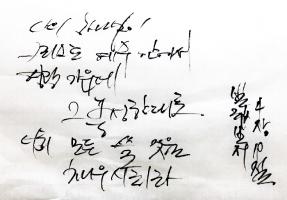 나의 하나님이
그리스도 예수 안에서
영광 가운데
그 풍성한대로
너희 모든 쓸 것을
채우시리라
빌립보서
4장 19절